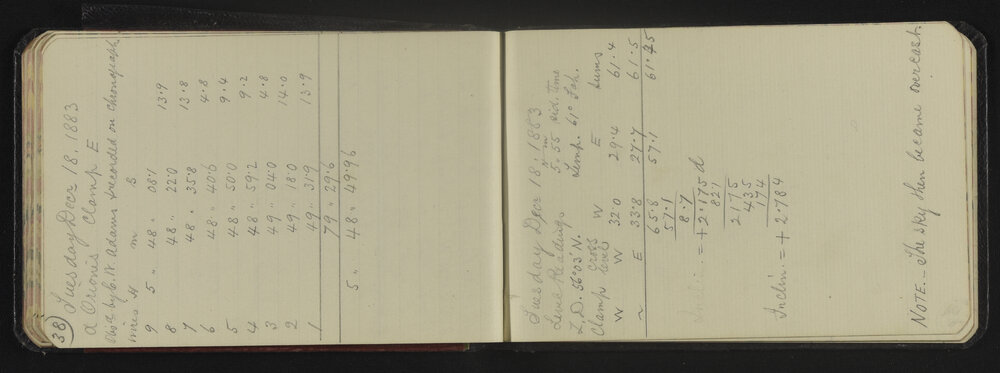 38
Tuesday Decr 18, 1883
α Orionis Clamp E
Obsd by C. W. Adams & recorded on chronograph
Wires H m s
9 5 " 48 " 08.1 13.9
8 48 " 22.0 13.8
7 48 " 35.8 4.8
6 48 " 40.6 9.4
5 48 " 50.0 9.2
4 48 " 59.2 4.8
3 49 " 04.0 14.0
2 49 " 18.0 13.9
1 49 " 31.9
79 " 29.6
5 " 48 " 49.96
Tuesday Decr 18, 1883
Level Readings 5h 55m sid. time
Z.D. 56°03' N. Temp. 61° Fah.
Clamp Cross level W E Sums
W W 32.0 29.4 61.4
" E 33.8 27.7 61.5
65.8 57.1 61.45
57.1
8.7
Inclin = + 2.175 d
821
2175
435
174
Inclin = + 2.784
NOTE.– The sky then became overcast.